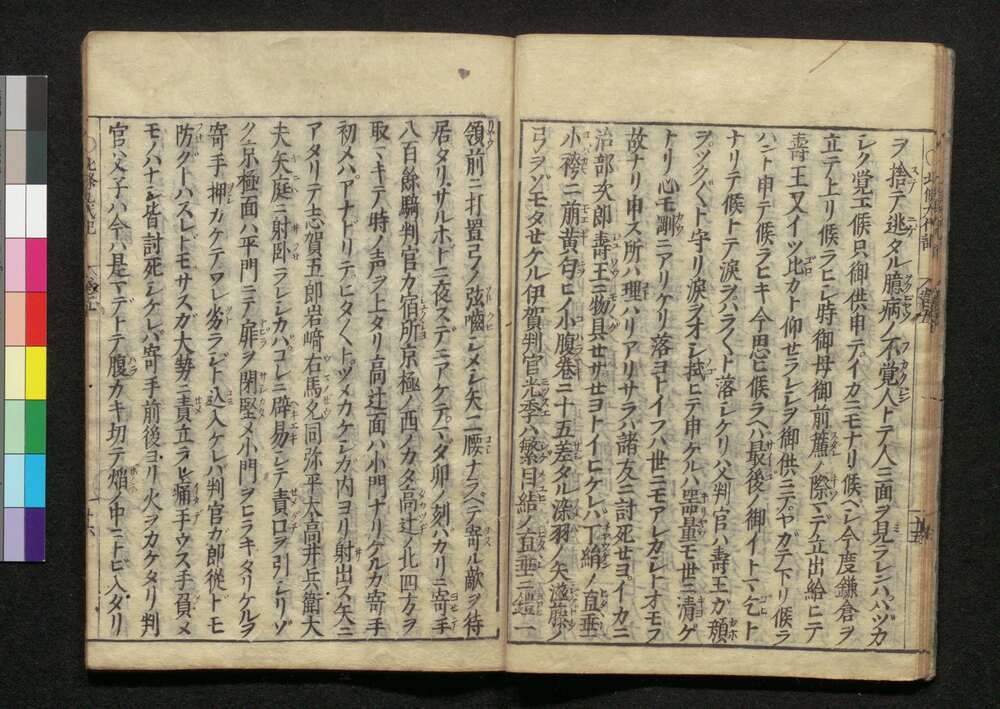 ヲ捨テ逃タル臆病ノ不覚人トテ人ニ面ヲ見ラレンハハヅカ
シク覚エ候只御供申テイカニモナリ候ベシ今度鎌倉ヲ
立テ上リ候ラヒシ時御母御前簾ノ際マデ立出給ヒニテ
壽王又イツ比カト仰セラレシヲ御供ニテヤガテ下リ候ラ
ハント申テ候ラヒキ今思ヒ候ラヘハ最後ノ御イトマ乞ト
ナリテ候トテ涙ヲハラハラト落シケリ父判官ハ壽王ガ顔
ヲツクヅクト守リ涙ヲオシ拭ヒテ申ケルハ器量モ世ニ清ゲ
トリ心モ剛ニアリケリ落ヨトイフハ世ニモアレカシトオモフ
故ナリ申ス所ハ理ハリアリサラハ諸友ニ討死セヨイカニ
治部次郎壽王ニ物具セサセヨトイヒケレハ丁絹ノ直垂
小袴ニ萠黄匂ヒノ小腹巻二十五差タル染羽ノ矢滋藤ノ
弓ヲゾモタセケル伊賀判官光季ハ繁目結ノ直垂ニ鎧一
領前ニ打置弓ノ弦嚙シメシ矢二腰ナラベテ寄ル敵ヲ待
居タリサルホドニ夜スデニアケテマダ卯ノ刻バカリニ寄手
八百餘騎判官カ宿所京極ノ西ノカタ高辻ノ北四方ヲ
取マキテ時ノ声ヲ上タリ高辻面ハ小門ナリケルカ寄手
初メハアナドリテヒタヒタトツメカケシガ内ヨリ射出ス矢ニ
アタリテ志賀五郎岩﨑右馬允同弥平太高井兵衛大
夫矢庭ニ射卧ラレシカハコレニ辟易シテ責口ヲ引シリゾ
ク京極面ハ平門ニテ扉ヲ閉堅メ小門ヲヒラキタリケルヲ
寄手押カケテワレ劣ラシト込入ケレバ判官カ郎従ドモ
防グトハスレドモサスガ大勢ニ責立ラレ痛手ウス手負ヌ
モノハナシ皆討死シケレバ寄手前後ヨリ火ヲカケタリ判
官父子ハ今ハ是マデトテ腹カキ切テ焔ノ中ニトビ入タリ